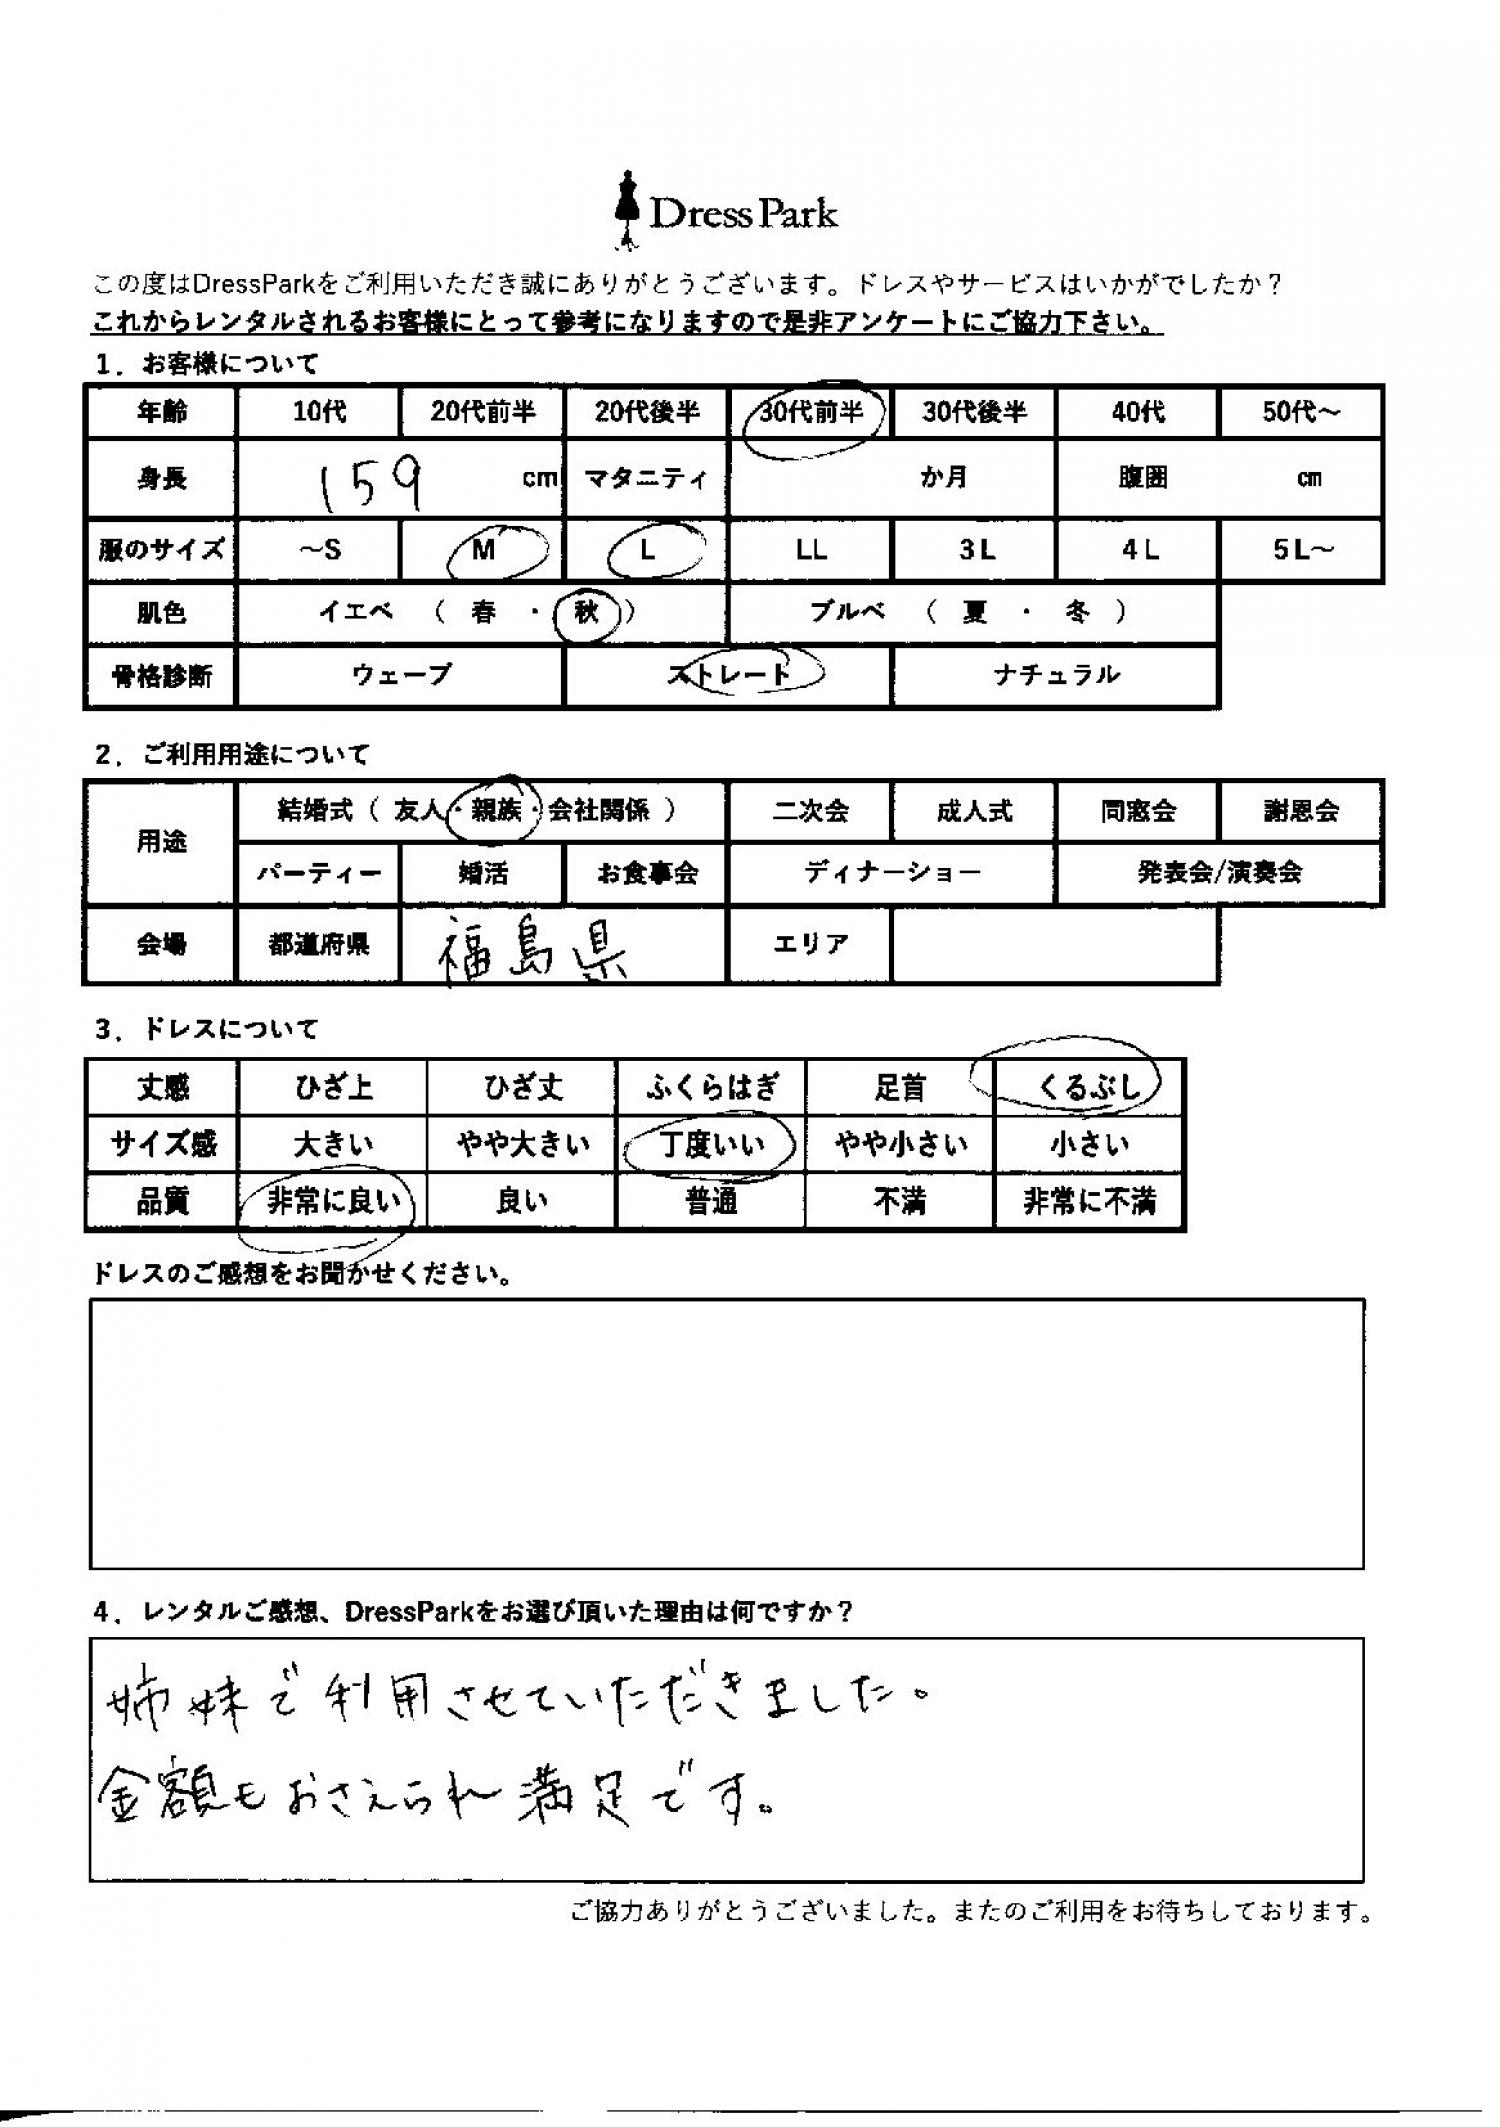 Dress Park
この度はDressParkをご利用いただき誠にありがとうございます。ドレスやサービスはいかがでしたか？
これからレンタルされるお客様にとって参考になりますので是非アンケートにご協力下さい。
1．お客様について
年齢 10代 20代前半 20代後半 30代前半 30代後半 40代 50代～
身長 159 cm マタニティ か月 腹囲 cm
服のサイズ ～S M L LL 3L 4L 5L～
肌色 イエベ （ 春 ・ 秋 ） ブルベ （ 夏 ・ 冬 ）
骨格診断 ウェーブ ストレート ナチュラル
2．ご利用用途について
用途 結婚式（ 友人・親族・会社関係 ） 二次会 成人式 同窓会 謝恩会
パーティー 婚活 お食事会 ディナーショー 発表会/演奏会
会場 都道府県 福島県 エリア
3．ドレスについて
丈感 ひざ上 ひざ丈 ふくらはぎ 足首 くるぶし
サイズ感 大きい やや大きい 丁度いい やや小さい 小さい
品質 非常に良い 良い 普通 不満 非常に不満
ドレスのご感想をお聞かせください。
4．レンタルご感想、DressParkをお選び頂いた理由は何ですか？
姉妹で利用させていただきました。
金額もおさえられ満足です。
ご協力ありがとうございました。またのご利用をお待ちしております。